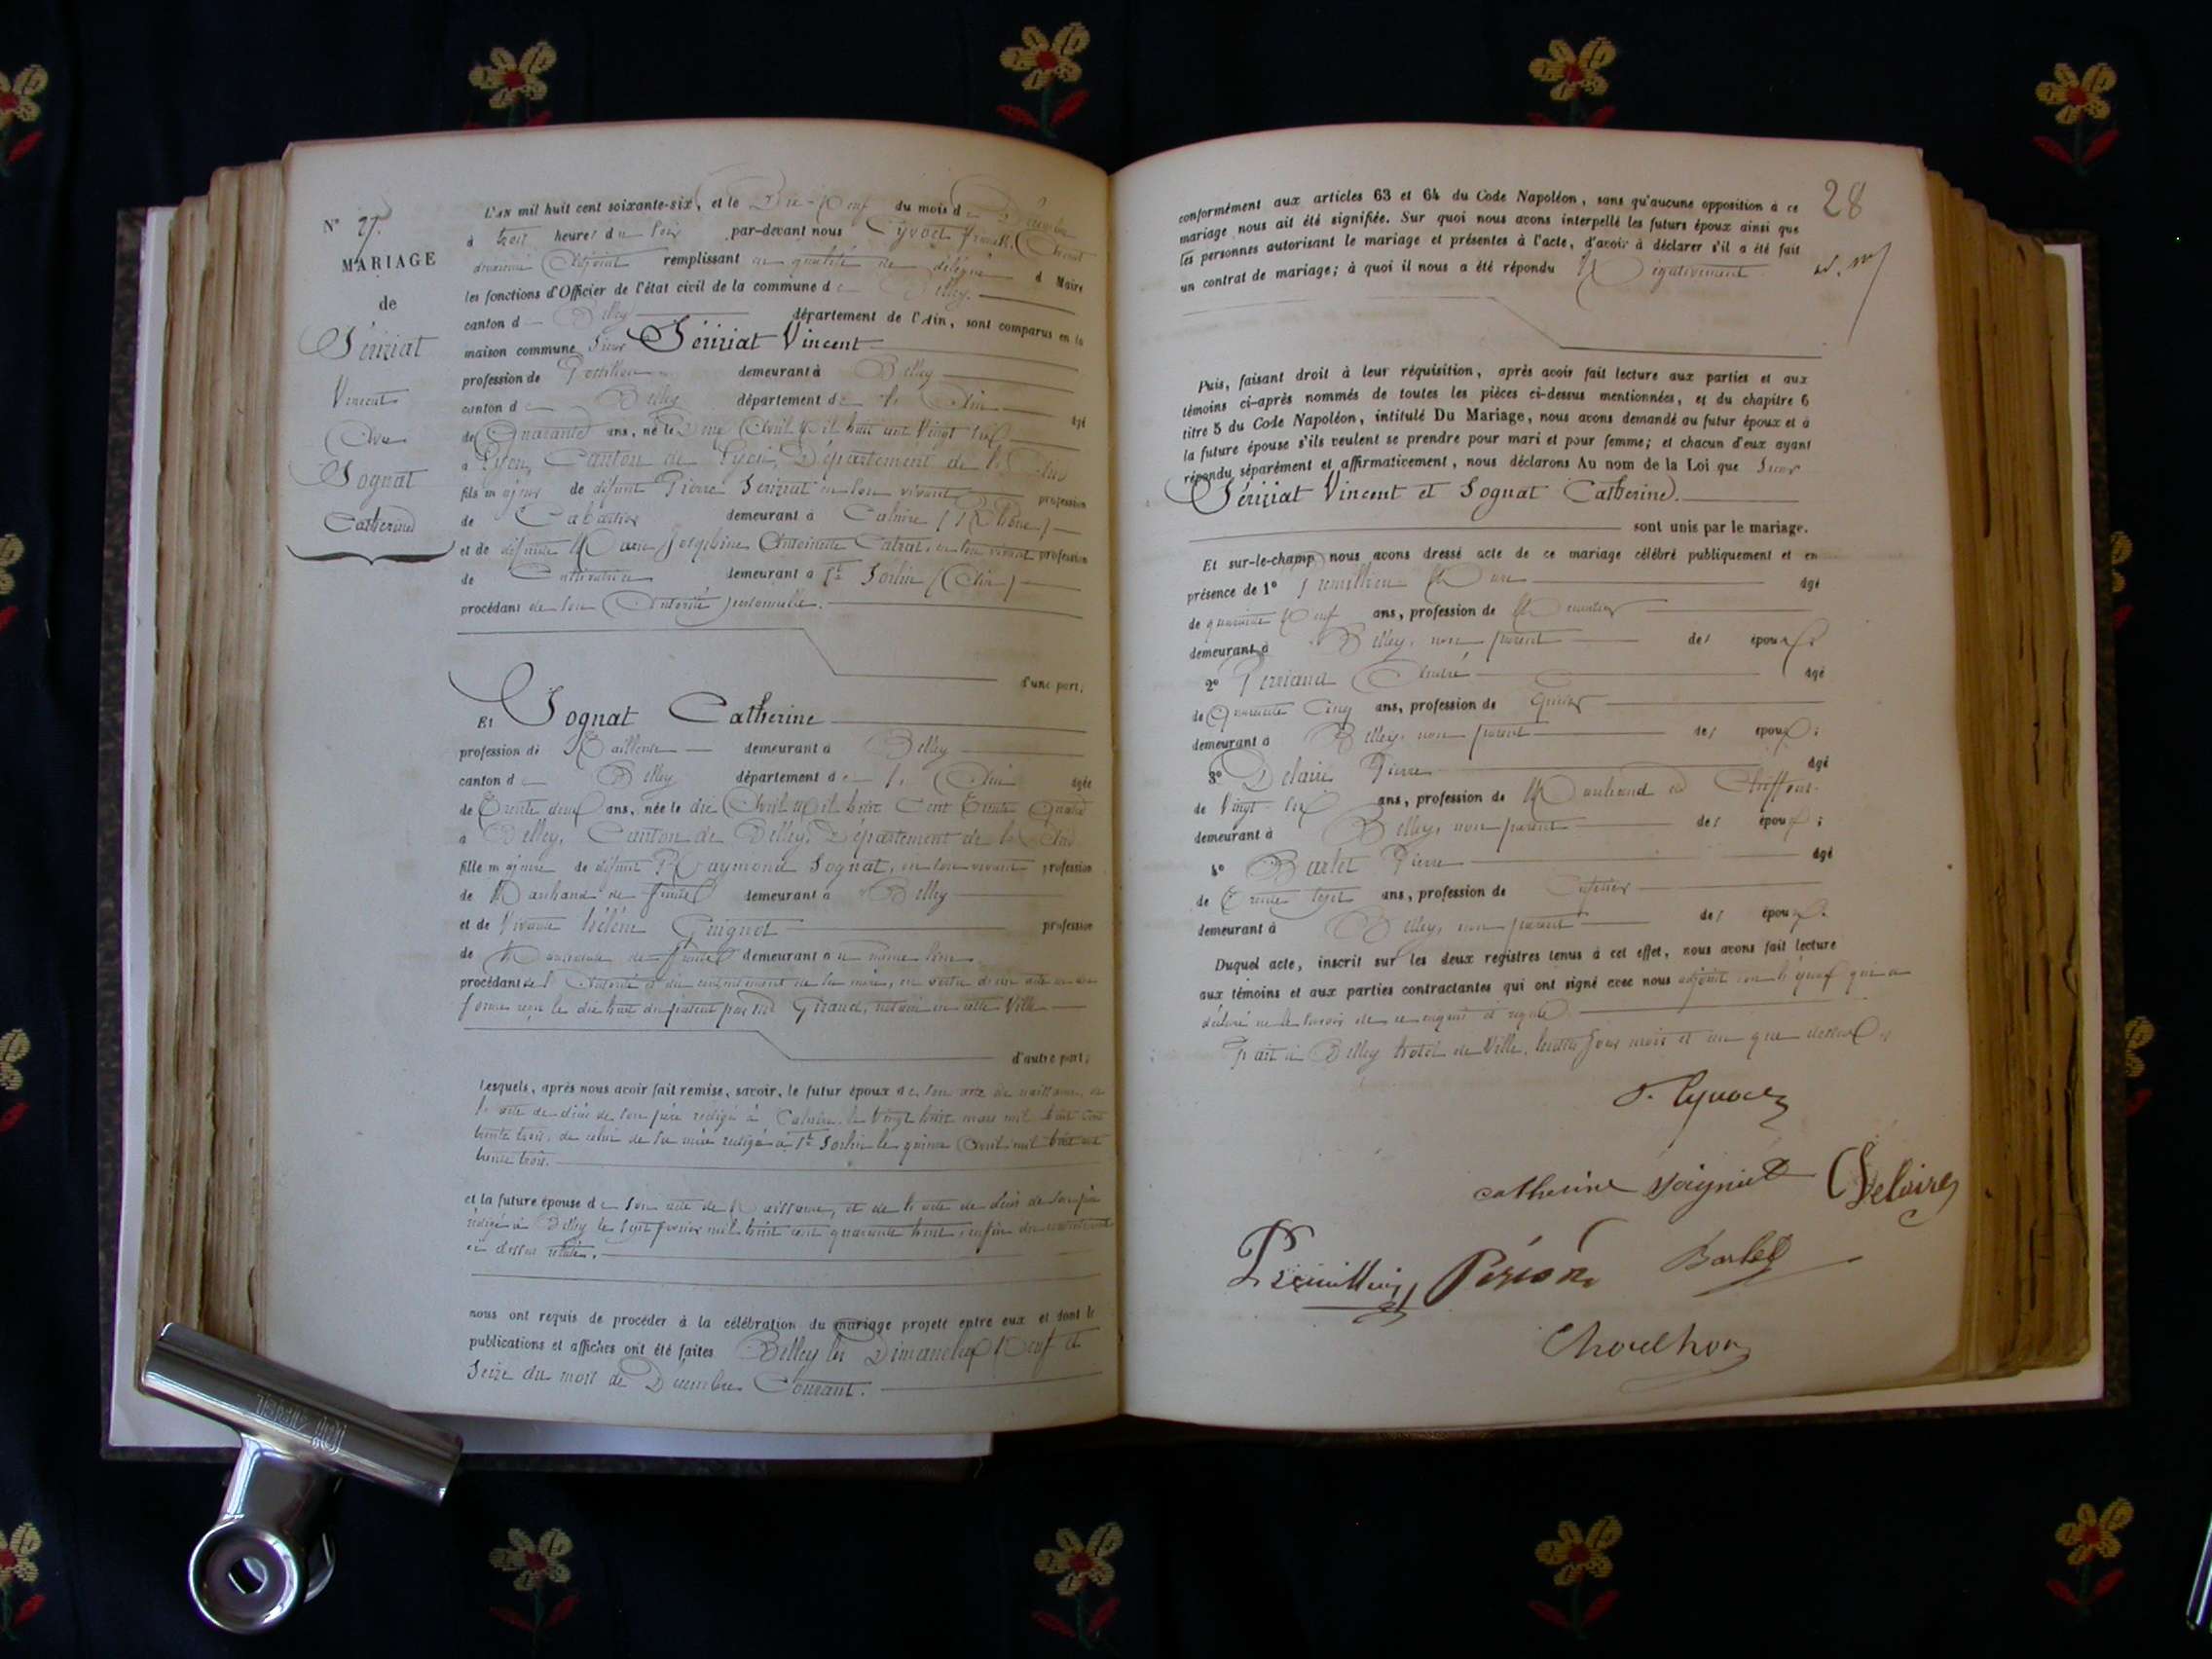 N° 27.
MARIAGE
de
Sériziat
Vincent
Avec
Sognat
Catherine
L'AN mil huit cent soixante-six, et le Dix-Neuf du mois de Décembre
à trois heures du soir par-devant nous
deuxième Adjoint remplissant en qualité de délégué d Maire
les fonctions d'Officier de l'état civil de la commune de Belley.
canton de Belley département de l'Ain, sont comparus en la
maison commune Sieur Sériziat Vincent
profession de Postillon demeurant à Belley
canton de Belley département de l'Ain âgé
de Quarante ans, né le Avril Mil huit cent Vingt six
à Lyon, Canton de Lyon, Département de
fils majeur de défunt Pierre Sériziat en son vivant profession
de Cabartier demeurant à Caluire (Rhône)
et de défunte Marie Joséphine Antoinette en son vivant profession
de Cultivatrice demeurant à St Sorlin (Ain)
procédant de son Autorité personnelle.
d'une part;
Et Sognat Catherine
profession de Tailleuse demeurant à Belley
canton de Belley département de l'Ain âgée
de Trente deux ans, née le dix Avril Mil huit Cent Trente Quatre
à Belley, Canton de Belley, Département de l'Ain
fille majeure de défunt Raymond Sognat, en son vivant profession
de Marchand de demeurant à Belley
et de Vivante Hélène Guignot profession
de Marchande de demeurant au même lieu
procédant de l'Autorité et du consentement de sa mère, en vertu d'un acte en
forme reçu le dix huit du présent par Me Girand, notaire en cette Ville
d'autre part;
Lesquels, après nous avoir fait remise, savoir, le futur époux de son acte de naissance, de
l'acte de décès de son père rédigé à Caluire, le Vingt huit mars mil huit cent
trente trois, de celui de sa mère rédigé à St Sorlin le quinze Avril mil huit cent
trente trois.
et la future épouse de son acte de Naissance, et de l'acte de décès de son père
rédigé à Belley le Sept février mil huit cent quarante huit, enfin du consentement
ci dessus relaté.
nous ont requis de procéder à la célébration du mariage projeté entre eux et dont les
publications et affiches ont été faites Belley les Dimanches Neuf et
Seize du mois de Décembre Courant.
28
conformément aux articles 63 et 64 du Code Napoléon, sans qu'aucune opposition à ce
mariage nous ait été signifiée. Sur quoi nous avons interpellé les futurs époux ainsi que
les personnes autorisant le mariage et présentes à l'acte, d'avoir à déclarer s'il a été fait
un contrat de mariage; à quoi il nous a été répondu Négativement
Puis, faisant droit à leur réquisition, après avoir fait lecture aux parties et aux
témoins ci-après nommés de toutes les pièces ci-dessus mentionnées, et du chapitre 6
titre 5 du Code Napoléon, intitulé Du Mariage, nous avons demandé au futur époux et à
la future épouse s'ils veulent se prendre pour mari et pour femme; et chacun d'eux ayant
répondu séparément et affirmativement, nous déclarons Au nom de la Loi que Sieur
Sériziat Vincent et Sognat Catherine.
sont unis par le mariage.
Et sur-le-champ nous avons dressé acte de ce mariage célébré publiquement et en
présence de 1° Premillieu Marc âgé
de quarante Neuf ans, profession de Menuisier
demeurant à Belley, non parent des époux;
2° André âgé
de Quarante Cinq ans, profession de
demeurant à Belley, non parent des époux;
3° Delaire Pierre âgé
de Vingt six ans, profession de Marchand de Chiffons
demeurant à Belley, non parent des époux;
4° Barlet Pierre âgé
de Trente Sept ans, profession de Cafetier
demeurant à Belley, non parent des époux.
Duquel acte, inscrit sur les deux registres tenus à cet effet, nous avons fait lecture
aux témoins et aux parties contractantes qui ont signé avec nous adjoint non l'époux qui a
déclaré ne le savoir de ce enquis et requis.
Fait à Belley hotel de Ville, lesdits jour mois et an que dessus
catherine Delaire
Barlet